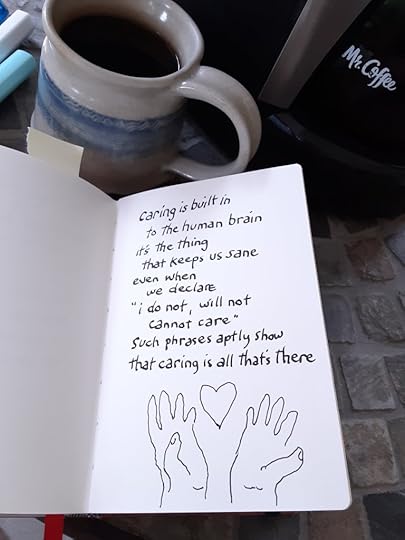 Mr. Coffee
caring is built in
to the human brain
it's the thing
that keeps us sane
even when
we declare
"i do not, will not
cannot care"
Such phrases aptly show
that caring is all that's there